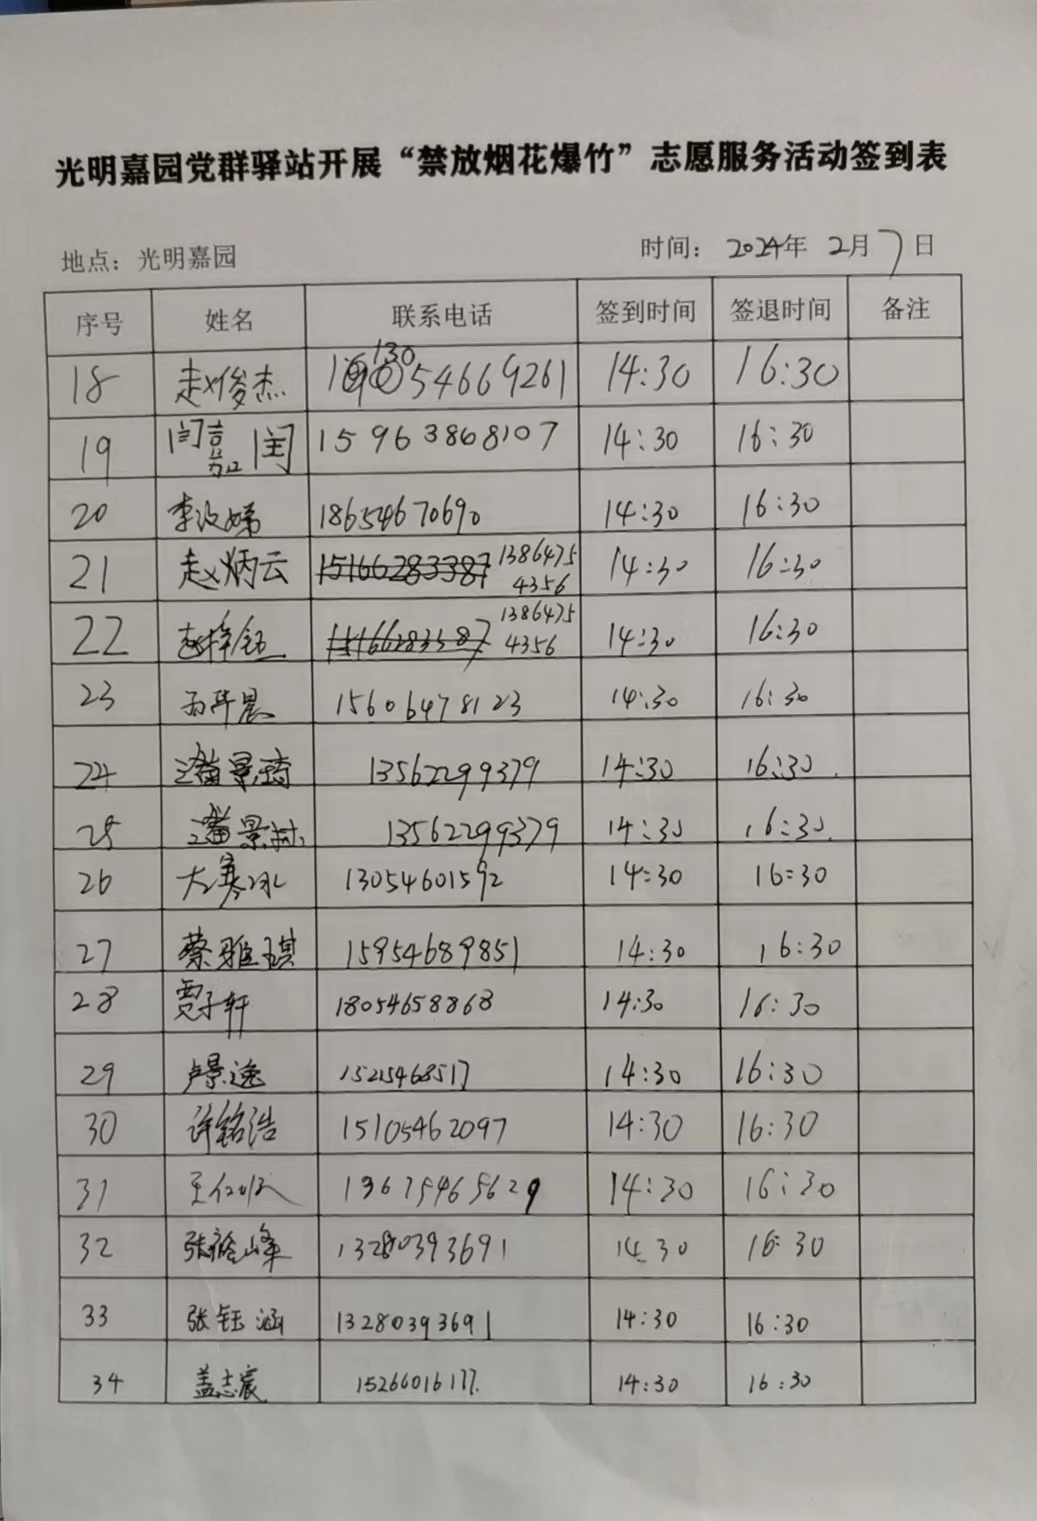 光明嘉园党群驿站开展“禁放烟花爆竹”志愿服务活动签到表
地点：光明嘉园 时间： 2024年 2月7日
序号 姓名 联系电话 签到时间 签退时间 备注
18 赵俊杰 13054669261 14:30 16:30
19 闫嘉闰 15963868107 14:30 16:30
20 李汶娣 18654670690 14:30 16:30
21 赵炳云 15166283387 13864754356 14:30 16:30
22 赵梓钰 15166283387 13864754356 14:30 16:30
23 15606478123 14:30 16:30
24 潘景琦 13562299379 14:30 16:30
25 潘景 13562299379 14:30 16:30
26 13054601592 14:30 16:30
27 蔡雅琪 15954689851 14:30 16:30
28 贾子轩 18054658868 14:30 16:30
29 卢景逸 15215468517 14:30 16:30
30 许铭浩 15105462097 14:30 16:30
31 13675465629 14:30 16:30
32 张裕峰 13280393691 14:30 16:30
33 张钰涵 13280393691 14:30 16:30
34 盖志宸 15266016177 14:30 16:30